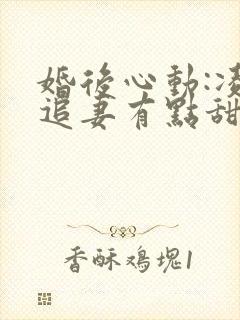 婚後心動:凌
追妻有點甜
香酥鳮塊1